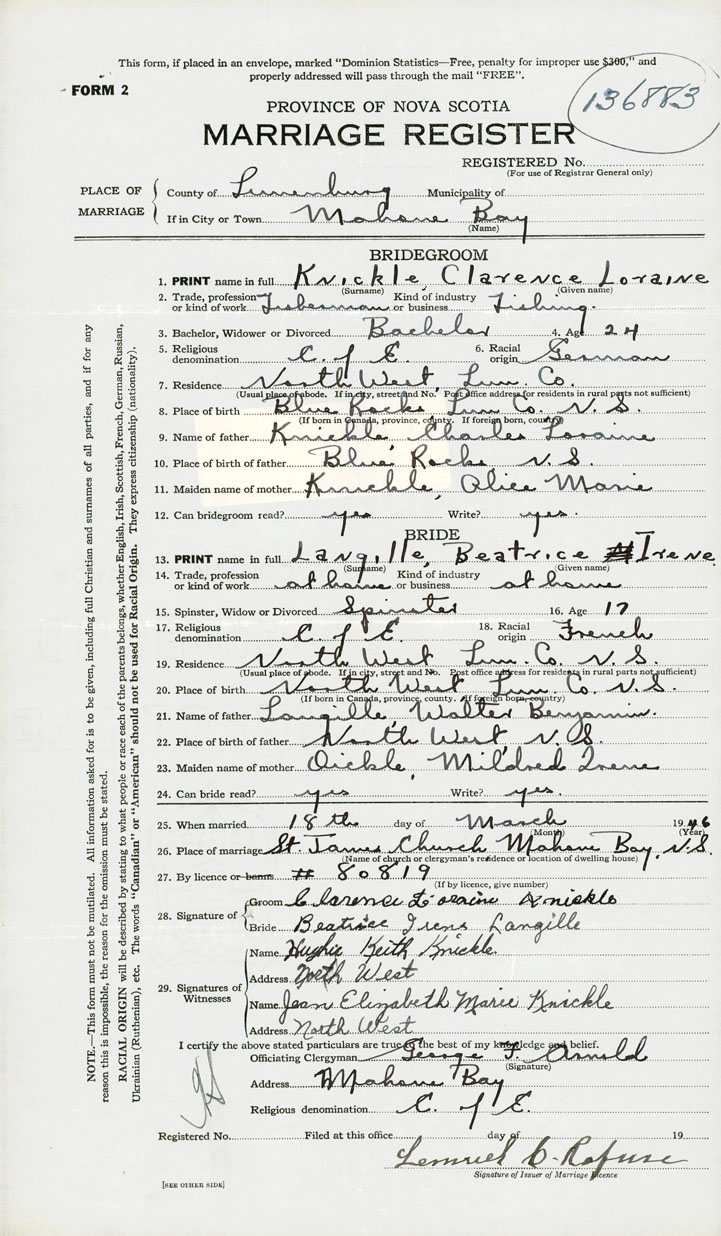 This form, if placed in an envelope, marked "Dominion Statistics—Free, penalty for improper use $300," and
properly addressed will pass through the mail "FREE".
FORM 2
136883
PROVINCE OF NOVA SCOTIA
MARRIAGE REGISTER
REGISTERED No.
(For use of Registrar General only)
PLACE OF MARRIAGE
County of Lunenburg Municipality of
If in City or Town Mahone Bay
(Name)
BRIDEGROOM
1. PRINT name in full Knickle, Clarence Loraine
(Surname) (Given name)
2. Trade, profession or kind of work Fisherman Kind of industry or business Fishing.
3. Bachelor, Widower or Divorced Bachelor 4. Age 24
5. Religious denomination C. of E. 6. Racial origin German
7. Residence North West, Lun. Co.
(Usual place of abode. If in city, street and No. Post office address for residents in rural parts not sufficient)
8. Place of birth Blue Rocks Lun Co. N. S.
(If born in Canada, province, county. If foreign born, country)
9. Name of father Knickle Charles Loraine
10. Place of birth of father Blue Rocks N. S.
11. Maiden name of mother Knickle, Alice Marie
12. Can bridegroom read? yes Write? yes.
BRIDE
13. PRINT name in full Langille, Beatrice Irene
(Surname) (Given name)
14. Trade, profession or kind of work at home Kind of industry or business at home
15. Spinster, Widow or Divorced Spinster 16. Age 17
17. Religious denomination C. of E. 18. Racial origin French
19. Residence North West Lun. Co. N. S.
(Usual place of abode. If in city, street and No. Post office address for residents in rural parts not sufficient)
20. Place of birth North West Lun. Co. N. S.
(If born in Canada, province, county. If foreign born, country)
21. Name of father Langille, Walter Benjamin.
22. Place of birth of father North West, N. S.
23. Maiden name of mother Oickle, Mildred Irene
24. Can bride read? yes Write? yes.
25. When married 18th day of March 1946
(Month) (Year)
26. Place of marriage St. James Church Mahone Bay, N.S.
(Name of church or clergyman's residence or location of dwelling house)
27. By licence or banns # 80819
(If by licence, give number)
28. Signature of
Groom Clarence Loraine Knickle
Bride Beatrice Irene Langille
29. Signatures of Witnesses
Name Hughie Keith Knickle
Address North West
Name Jean Elizabeth Marie Knickle
Address North West
I certify the above stated particulars are true to the best of my knowledge and belief.
Officiating Clergyman George F. Arnold
(Signature)
Address Mahone Bay
Religious denomination C. of E.
Registered No. Filed at this office day of 19
Lemuel C. Rafuse
Signature of Issuer of Marriage Licence
[SEE OTHER SIDE]
NOTE.—This form must not be mutilated. All information asked for is to be given, including full Christian and surnames of all parties, and if for any
reason this is impossible, the reason for the omission must be stated.
RACIAL ORIGIN will be described by stating to what people or race each of the parents belongs, whether English, Irish, Scottish, French, German, Russian,
Ukrainian (Ruthenian), etc. The words "Canadian" or "American" should not be used for Racial Origin. They express citizenship (nationality).